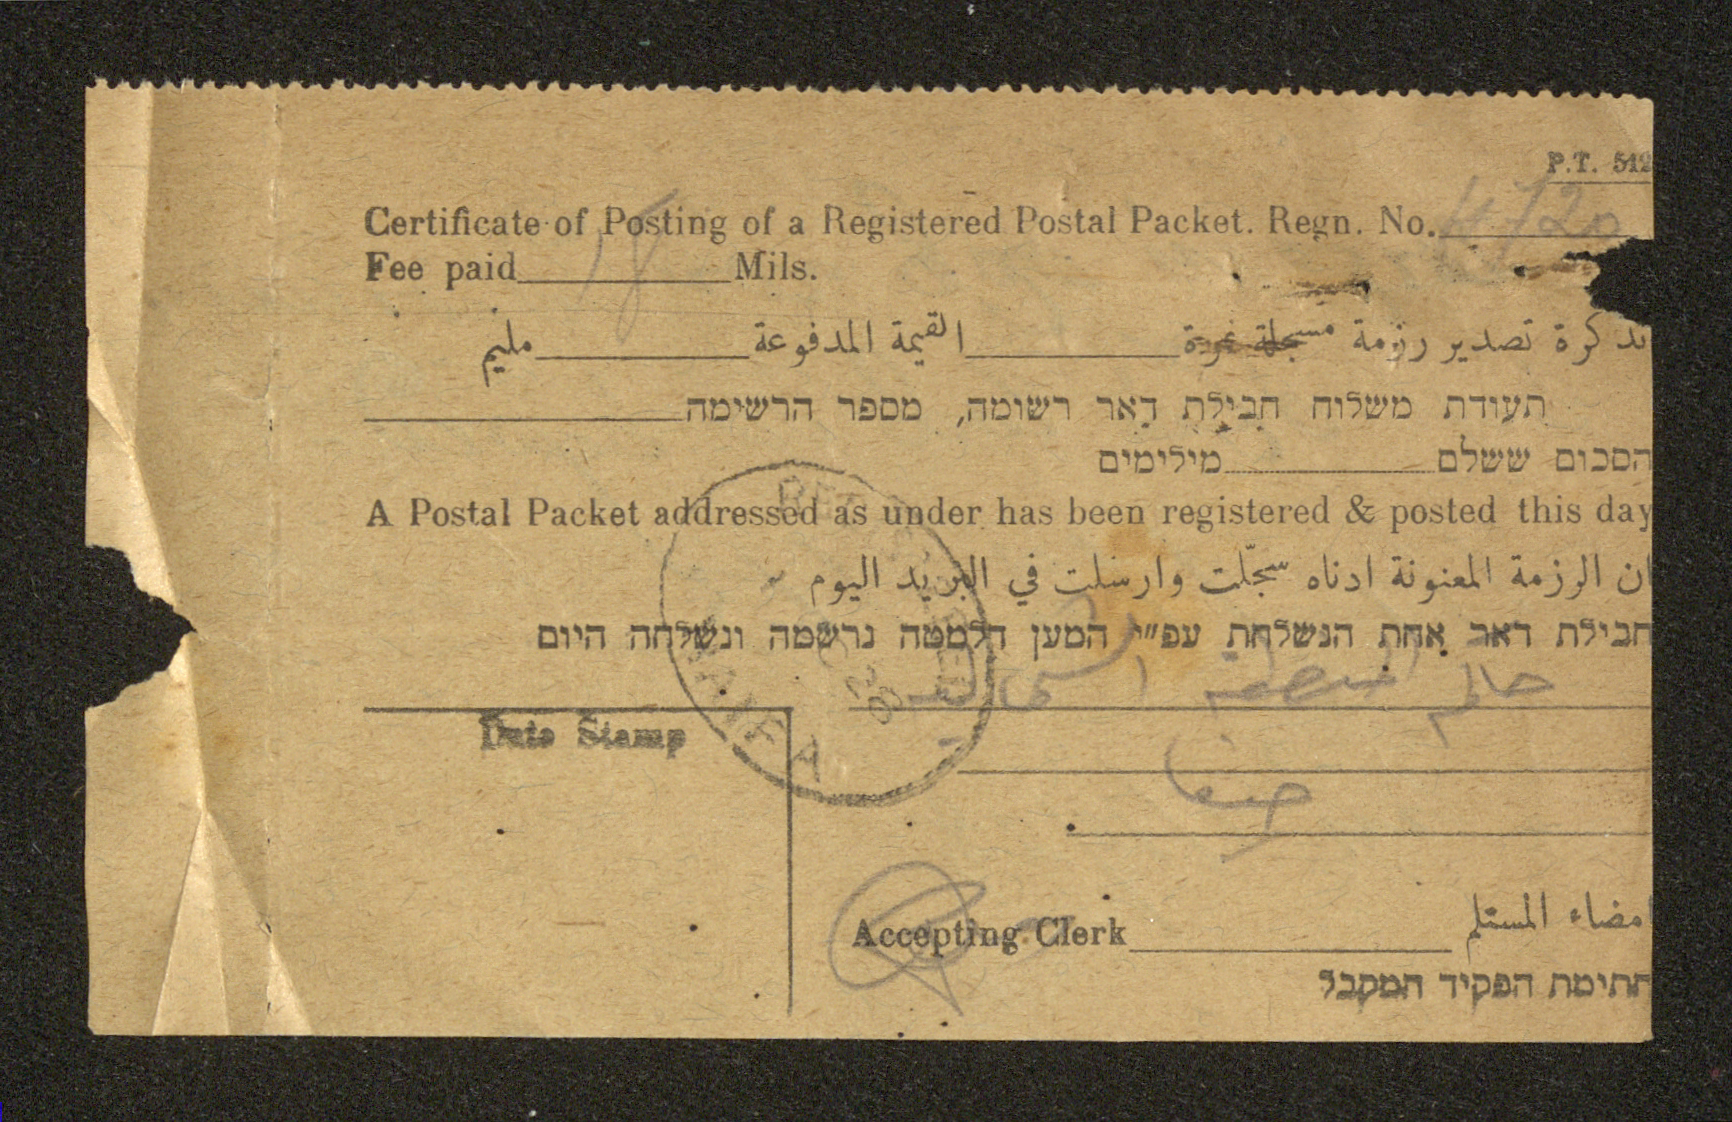 P.T. 512
Certificate of Posting of a Registered Postal Packet. Regn. No. 4720
Fee paid 18 Mils.
تذكرة تصدير رزمة مسجلة نمرة القيمة المدفوعة مليم
תעודת משלוח חבילת דאר רשומה, מספר הרשימה
הסכום ששלם מילימים
A Postal Packet addressed as under has been registered & posted this day
ان الرزمة المعنونة ادناه سجّلت وارسلت في البريد اليوم
חבילת דאר אחת הנשלחת עפ"י המען הלמטה נרשמה ונשלחה היום
حاكم
حيفا
Date Stamp
HAIFA
Accepting Clerk امضاء المستلم
חתימת הפקיד המקבל